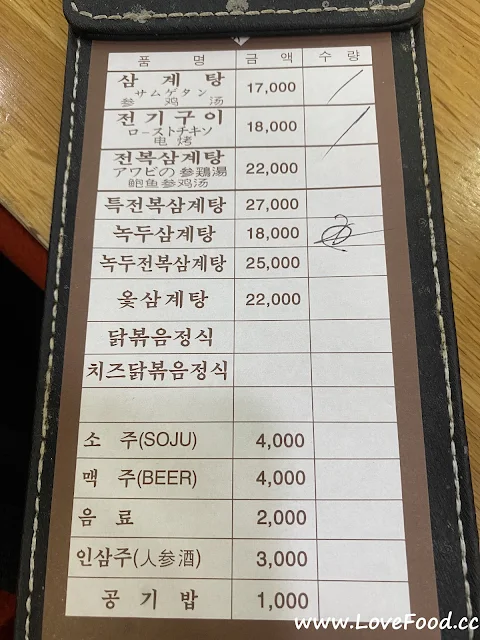 품 명 금 액 수 량
삼 계 탕 17,000
サムゲタン
参 鸡 汤
전 기 구 이 18,000
ローストチキソ
电 烤
전복삼계탕 22,000
アワビの 参鶏湯
鲍鱼参鸡汤
특전복삼계탕 27,000
녹두삼계탕 18,000
녹두전복삼계탕 25,000
옻삼계탕 22,000
닭볶음정식
치즈닭볶음정식
소 주(SOJU) 4,000
맥 주(BEER) 4,000
음 료 2,000
인삼주(人参酒) 3,000
공 기 밥 1,000
www.LoveFood.cc